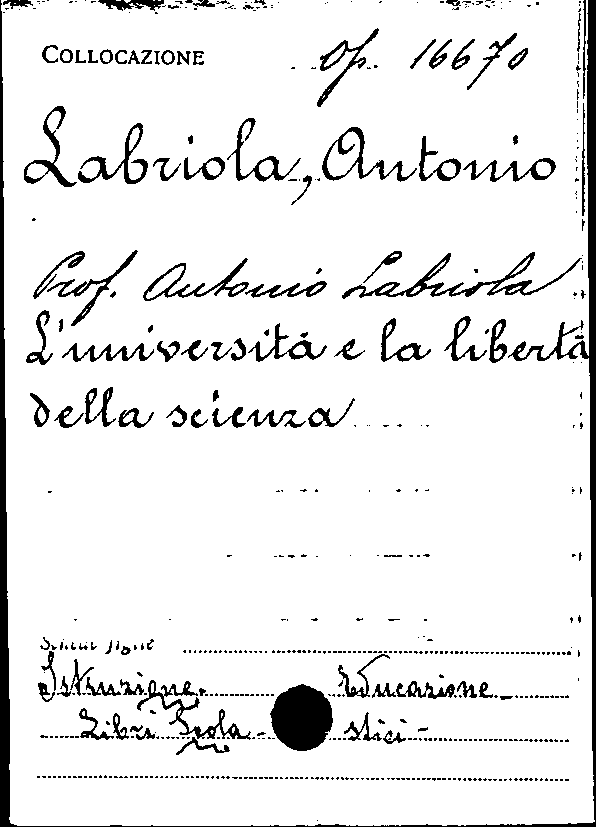 COLLOCAZIONE Op. 16670
Labriola, Antonio
Prof. Antonio Labriola
L'università e la libertà
della scienza
Istruzione. Educazione -
Libri Scola - stici -